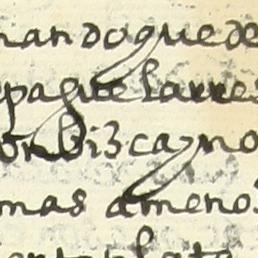 nando que de
pague larres
on bizcayno
mas amenos